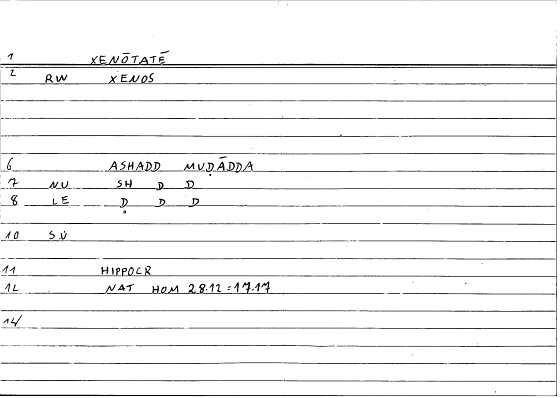 1 XENŌTATĒ
2 RW XENOS
6 ASHADD MUḌĀDDA
7 NU SH D D
8 LE Ḍ D D
10 SU
11 HIPPOCR
12 NAT HOM 28.12 = 17.17
14/